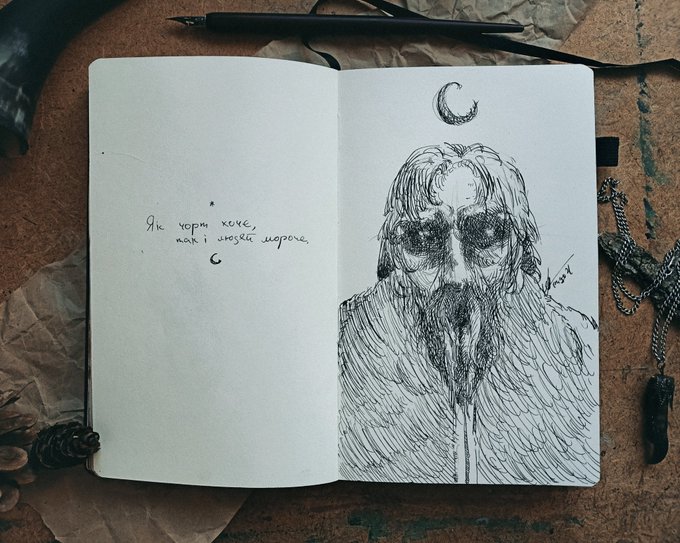 *
Як чорт хоче,
так і людей мороче